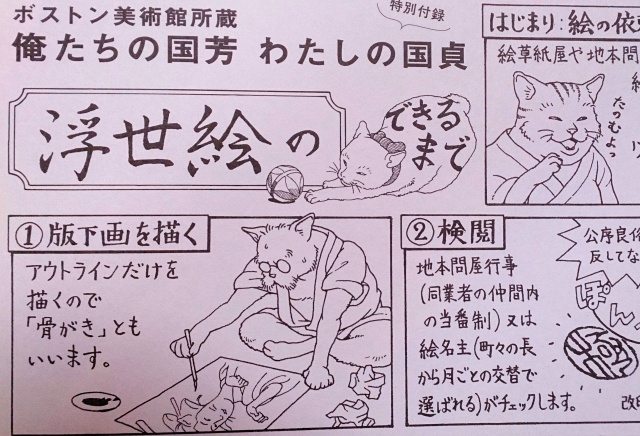 ボストン美術館所蔵
特別付録
俺たちの国芳 わたしの国貞
浮世絵の
できる
まで
はじまり:絵の依
絵草紙屋や地本問
たのむよっ
①版下画を描く
アウトラインだけを
描くので
「骨がき」とも
いいます。
②検閲
地本問屋行事
(同業者の仲間内
の当番制)又は
絵名主(町々の長
から月ごとの交替で
選ばれる)がチェックします。
公序良俗
反してな
ぽん
改印